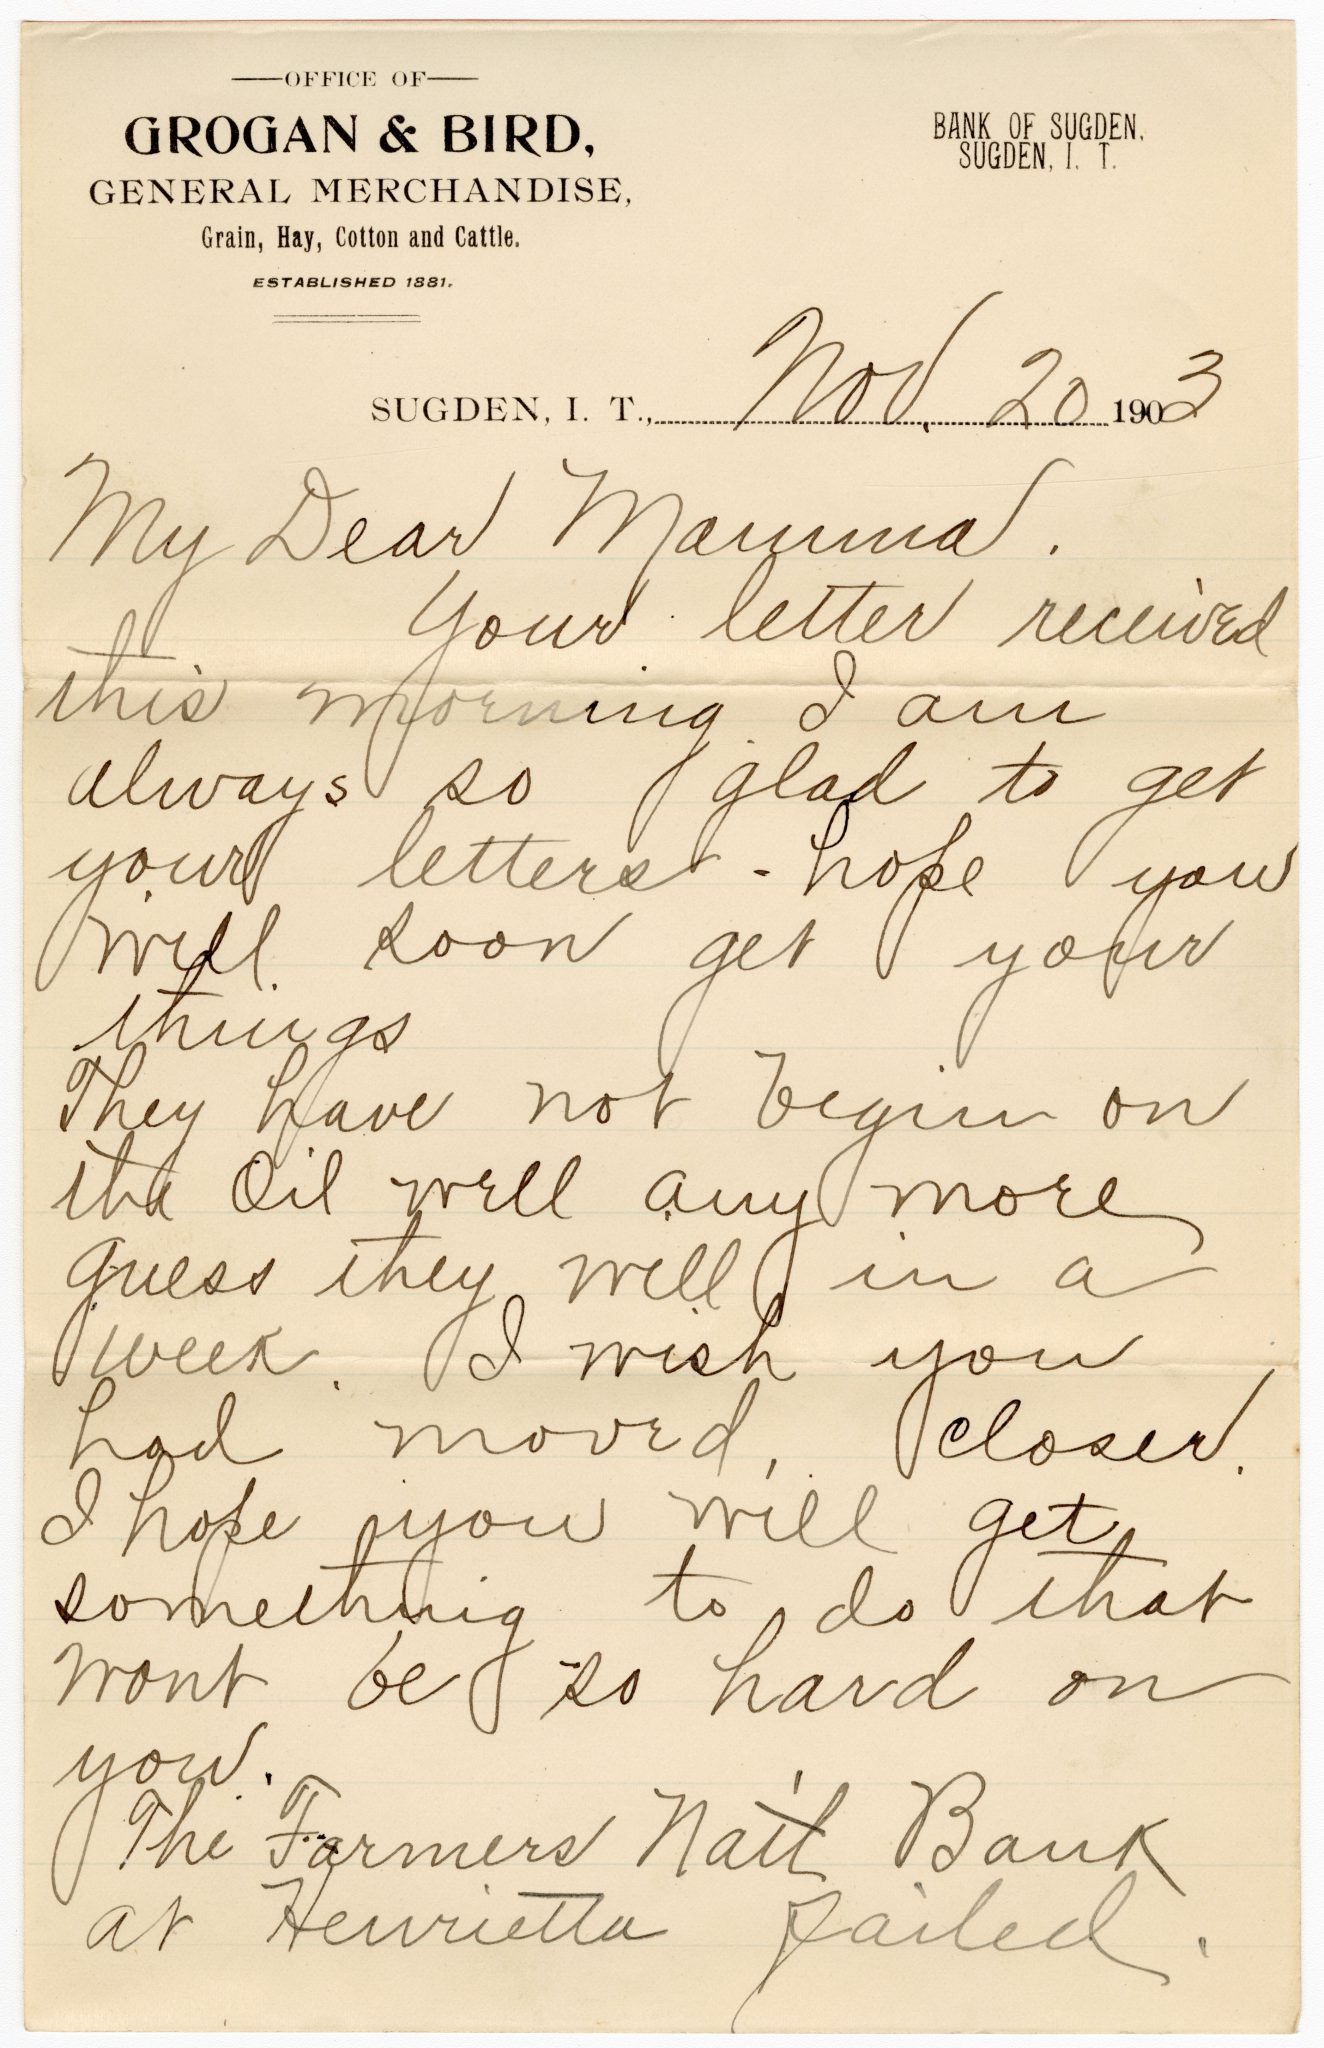 OFFICE OF
GROGAN & BIRD,
GENERAL MERCHANDISE,
Grain, Hay, Cotton and Cattle.
ESTABLISHED 1881.
BANK OF SUGDEN,
SUGDEN, I. T.
SUGDEN, I. T., Nov. 20 1903
My Dear Mamma.
Your letter received
this morning. I am
always so glad to get
your letters - hope you
will soon get your
things
They have not begin on
the Oil well any more
guess they will in a
week. I wish you
had moved, closer.
I hope you will get
something to do that
wont be so hard on
you.
The Farmers Nat'l Bank
at Henrietta failed.